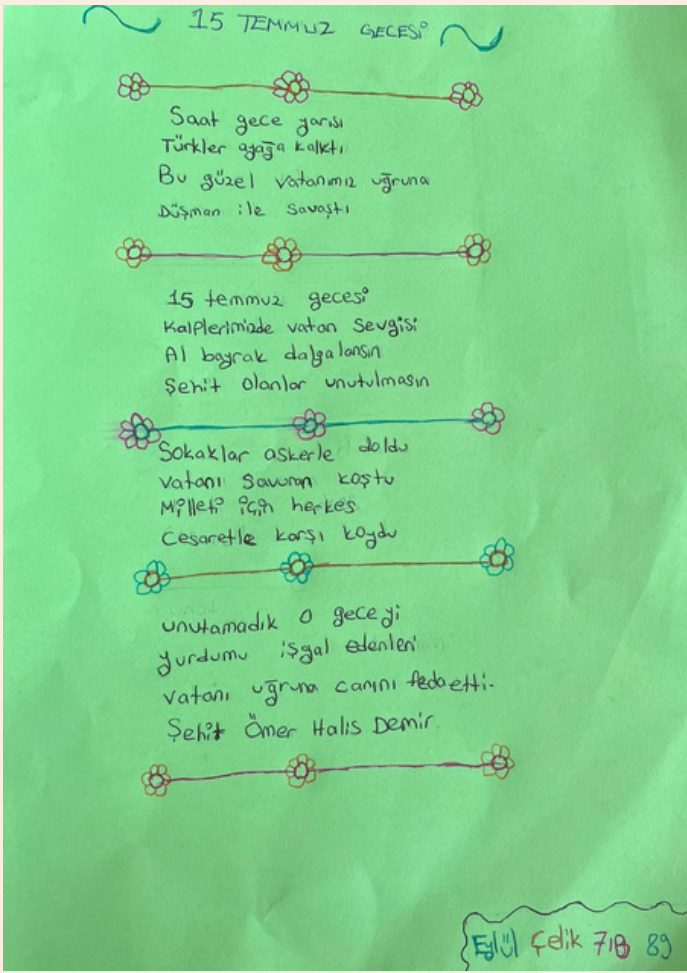 15 TEMMUZ GECESİ
Saat gece yarısı
Türkler ayağa kalktı
Bu güzel vatanımız uğruna
Düşman ile savaştı
15 temmuz gecesi
Kalplerimizde vatan sevgisi
Al bayrak dalgalansın
Şehit olanlar unutulmasın
Sokaklar askerle doldu
Vatanı savunan koştu
Milleti için herkes
Cesaretle karşı koydu
unutamadık o geceyi
yurdumu işgal edenleri
vatanı uğruna canını feda etti.
Şehit Ömer Halis Demir
Eylül Çelik 7/B 89